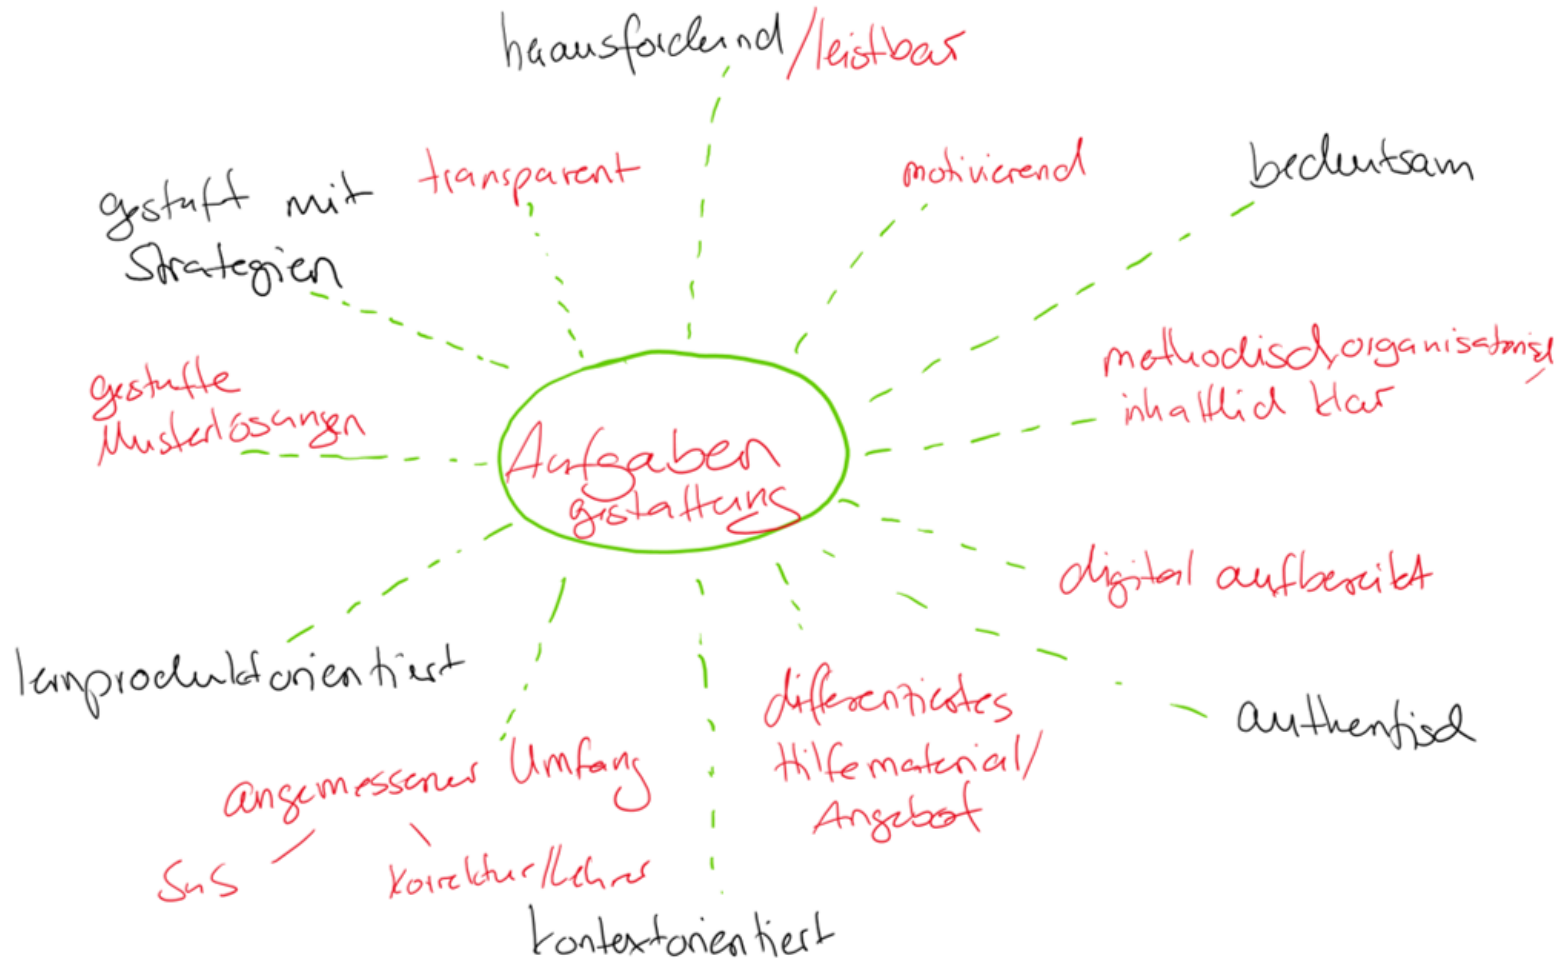 herausfordernd/leistbar
transparent
motivierend
bedeutsam
gestuft mit
Strategien
methodisch, organisatorisch,
inhaltlich klar
gestufte
Musterlösungen
Aufgaben
gestaltung
digital aufbereitet
lernproduktorientiert
differenziertes
Hilfematerial/
Angebot
authentisch
angemessener Umfang
SuS
Korrektur/Lehrer
kontextorientiert